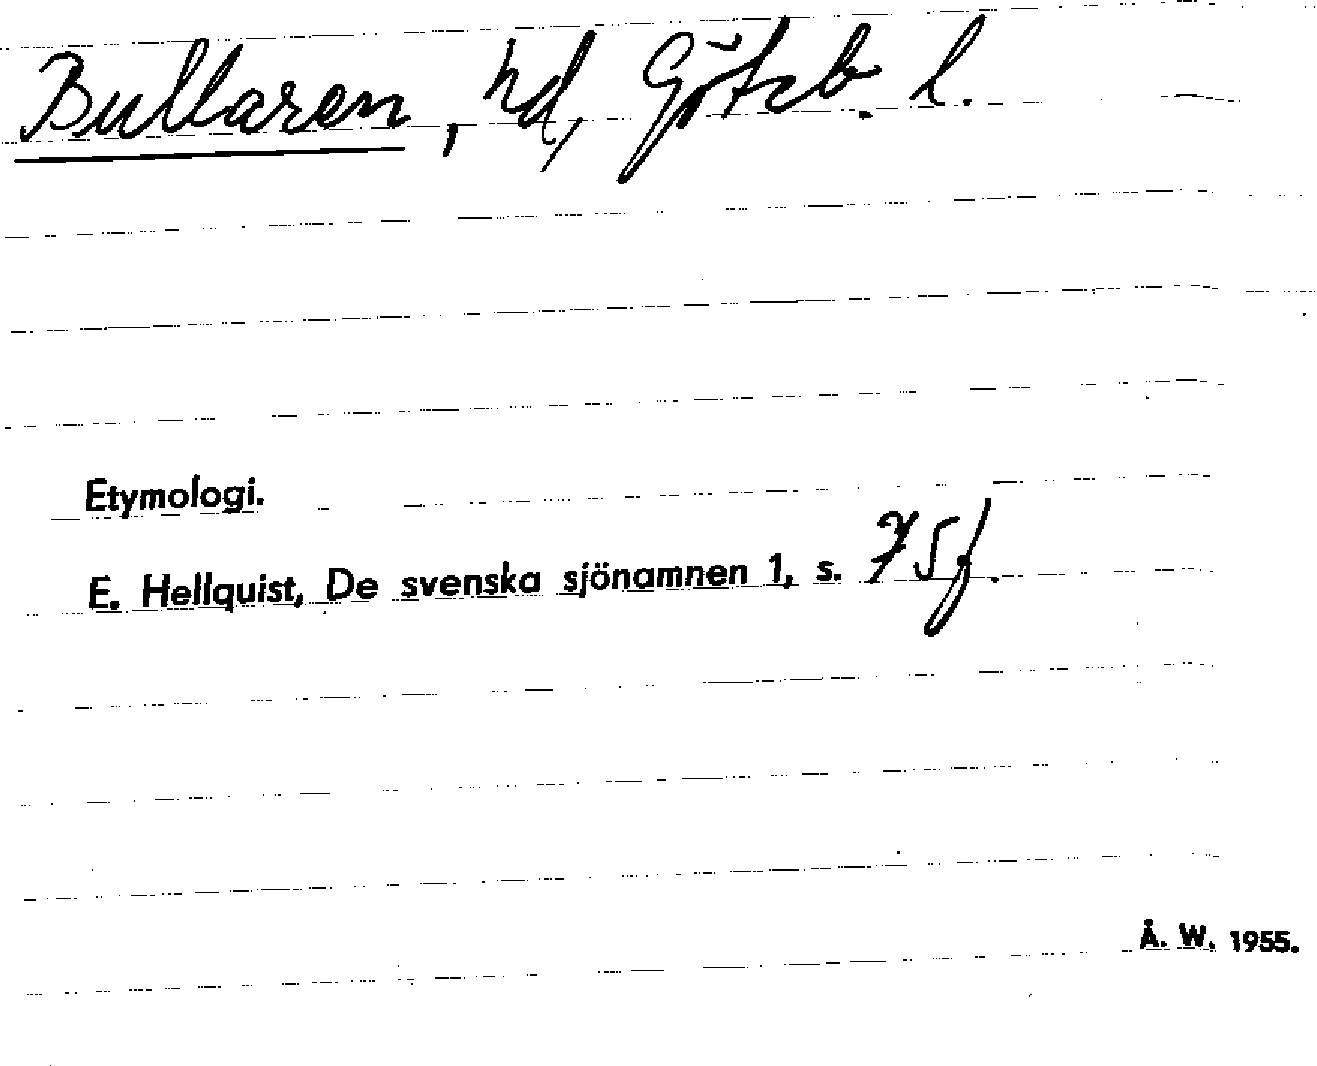 Bullaren, hd, Götcb. l.
Etymologi.
E. Hellquist, De svenska sjönamnen 1, s. 75f.
Å. W. 1955.